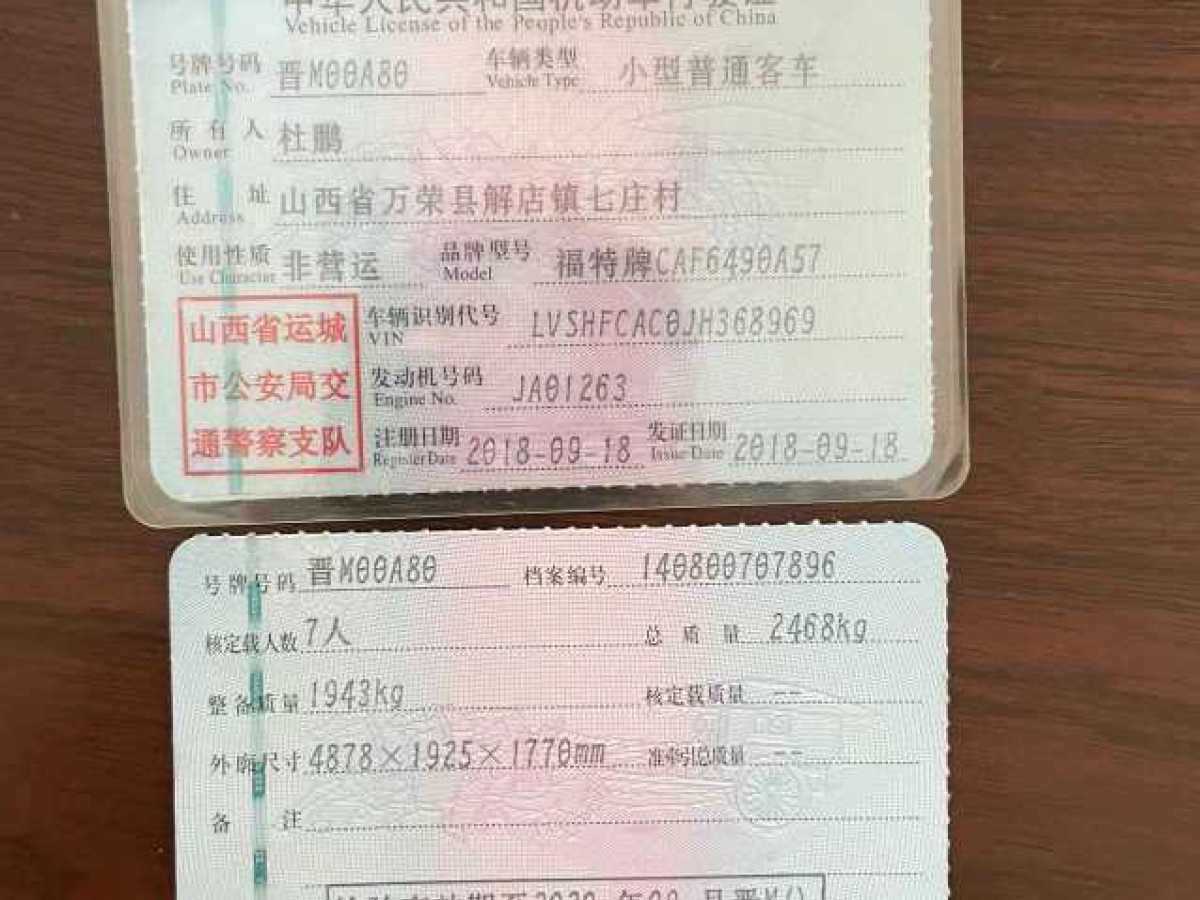 中华人民共和国机动车行驶证
Vehicle License of the People's Republic of China
号牌号码 晋M00A80 车辆类型 小型普通客车
Plate No. Vehicle Type
所有人 杜鹏
Owner
住址 山西省万荣县解店镇七庄村
Address
使用性质 非营运 品牌型号 福特牌CAF6490A57
Use Character Model
山西省运城
市公安局交
通警察支队
车辆识别代号 LVSHFCAC0JH368969
VIN
发动机号码 JA01263
Engine No.
注册日期 2018-09-18 发证日期 2018-09-18
Register Date Issue Date
号牌号码 晋M00A80 档案编号 140800707896
核定载人数 7人 总质量 2468kg
整备质量 1943kg 核定载质量 --
外廓尺寸 4878×1925×1770mm 准牵引总质量 --
备注